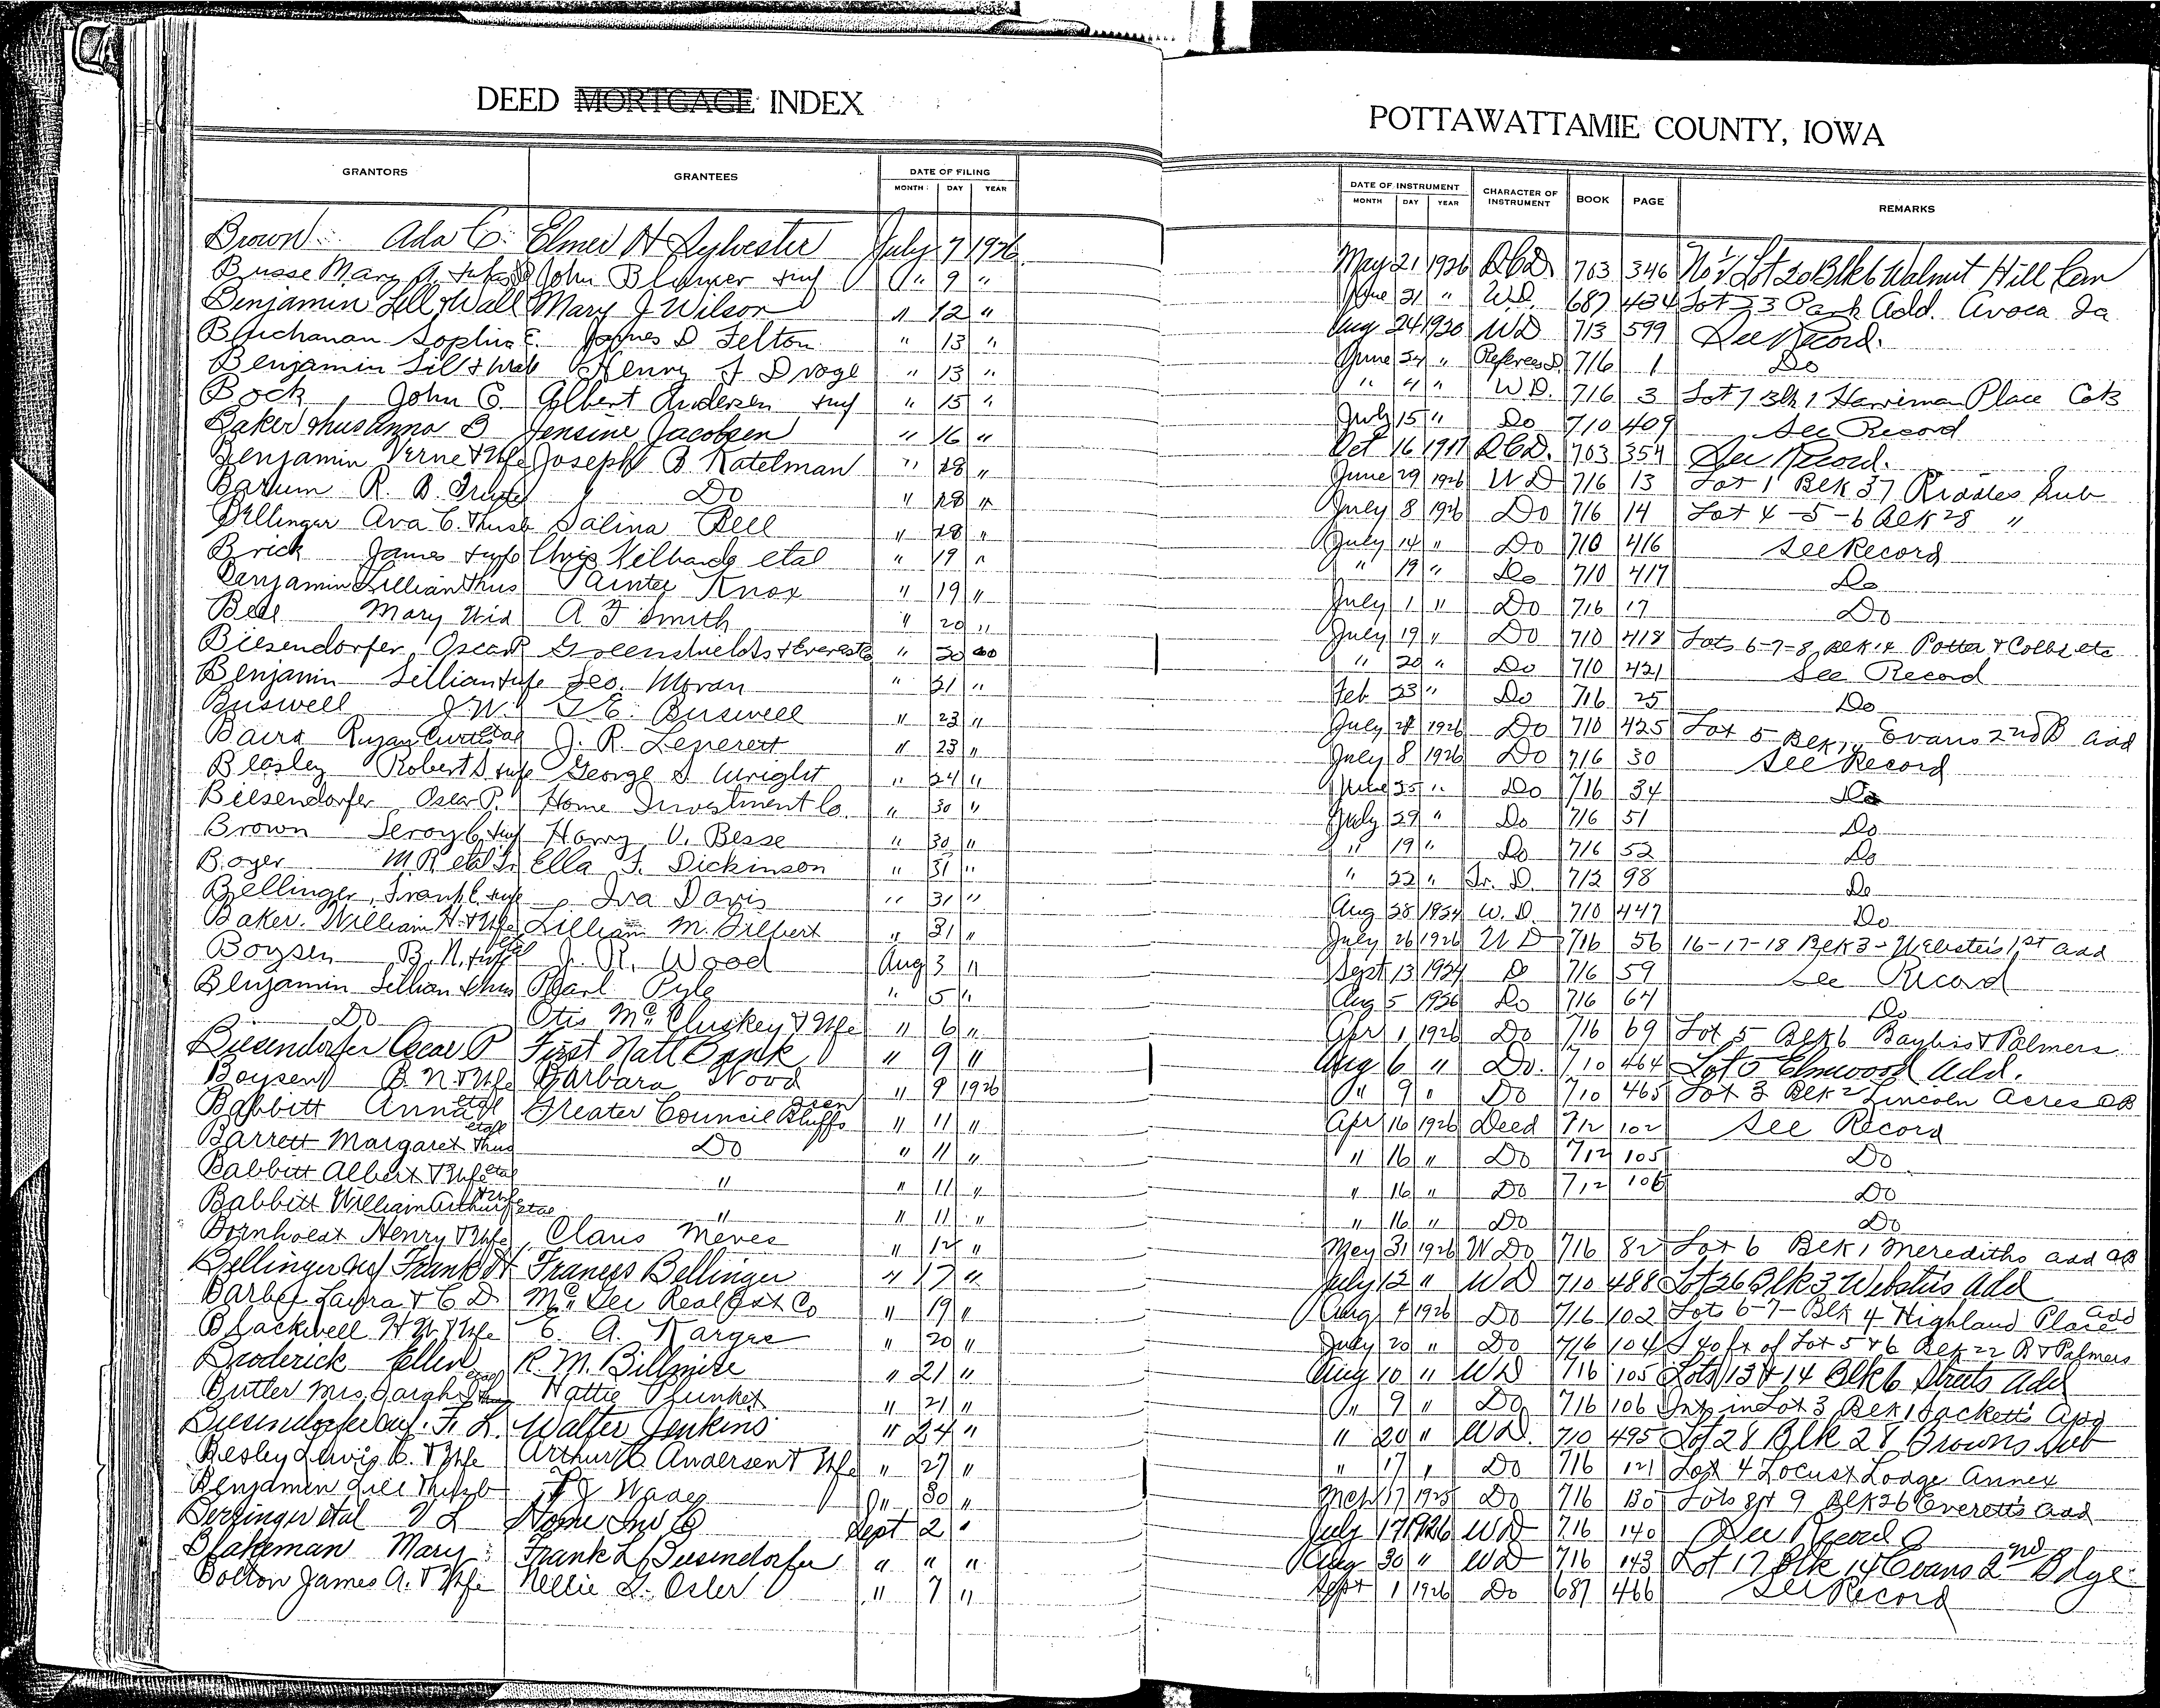 DEED MORTGAGE INDEX
POTTAWATTAMIE COUNTY, IOWA
GRANTORS GRANTEES DATE OF FILING MONTH DAY YEAR
DATE OF INSTRUMENT MONTH DAY YEAR CHARACTER OF INSTRUMENT BOOK PAGE REMARKS
Brown Ada C. Elmer H Sylvester July 7 1926 May 21 1926 703 346 Lot 20 Blk 6 Walnut Hill Cem
Busse Mary A. John " 9 " June 21 " W.D. 687 434 Lot 33 Park Add. Avoca Ia
Benjamin Mary J Wilson " 12 " Aug 24 1920 WD 713 599 See Record.
Buchanan Sophia E. James D Felton " 13 " June 24 " Referees D 716 1 Do
Benjamin Henry " 13 " " 4 " W D. 716 3 Lot 7 Blk 1 Harriman Place
Bock John C. Albert Andersen " 15 " July 15 " Do 710 409 See Record
Baker Anna Jensine Jacobsen " 16 " Oct 16 703 354 See Record.
Benjamin Verne & Wife Joseph B Katelman " 28 " June 29 1926 W D 716 13 Lot 1 Blk 37 Riddles Sub
R. B. Do " 28 " July 8 1926 Do 716 14 Lot 4-5-6 Blk 28 "
Bellinger Ava C. Salina Bell " 28 " July 14 " Do 710 416 See Record
Brick James Chris etal " 19 " " 19 " Do 710 417 Do
Benjamin Lillian Knox " 19 " July 1 " Do 716 17 Do
Bell Mary Wid A F Smith " 20 " July 19 " Do 710 418 Lots 6-7-8 Blk 14 Potter & etc
Biesendorfer Oscar P Greenshields & Everest " 20 " 20 " Do 710 421 See Record
Benjamin Lillian Geo. Moran " 21 " Feb 23 " Do 716 25 Do
Buswell J W. Buswell " 23 " July 1926 Do 710 425 Lot 5 Blk 14 Evans 2nd B add
Baird etal J. R. " 23 " July 8 1926 Do 716 30 See Record
Beasley Robert George S Wright " 24 " June 25 " Do 716 34 Do
Biesendorfer Oscar P. Home Investment Co. " 30 " July 29 " Do 716 51 Do
Brown Leroy Harry V. Besse " 30 " " 19 " Do 716 52 Do
Boyer M R etal Ella F. Dickinson " 31 " " 22 " Tr. D. 712 98 Do
Bellinger, Frank Iva Davis " 31 " Aug 28 1924 W. D. 710 447 Do
Baker. William H. & Wife Lillian M. Gilbert " 31 " July 26 1926 W D 716 56 16-17-18 Blk 3 - Websters 1st add
Boysen B. N. & wife etal J. R. Wood Aug 3 " Sept 13 1924 D 716 59 See Record
Benjamin Lillian & hus Pearl Pyle " 5 " Aug 5 1926 Do 716 64 Do
Do Otis McCluskey & Wife " 6 " Apr 1 1926 Do 716 69 Lot 5 Blk 6 Bayliss & Palmers
Biesendorfer Oscar P First Natl Bank " 9 " Aug 6 " Do. 710 464 Lot 5 Elmwood Add.
Boysen B. N & Wife Barbara Wood " 9 1926 " 9 " Do 710 465 Lot 3 Blk 2 Lincoln Acres CB
Babbitt Anna etal Greater Council Bluffs Assn " 11 " Apr 16 1926 Deed 712 102 See Record
Barrett Margaret & hus etal Do " 11 " " 16 " Do 712 105 Do
Babbitt Albert & Wife etal " " 11 " " 16 " Do 712 106 Do
Babbitt William Arthur & wife etal " " 11 " " 16 " Do Do
Bornholdt Henry & Wife Claus Meves " 12 " May 31 1926 W Do 716 82 Lot 6 Blk 1 Merediths add CB
Bellinger Frank H Frances Bellinger " 17 " July 12 " WD 710 488 Lot 26 Blk 3 Websters Add
Barber Laura & C D McGee Real Est Co " 19 " Aug 4 1926 Do 716 102 Lots 6-7- Blk 4 Highland Place add
Blackwell H W & Wife E. A. Karges " 20 " July 20 " Do 716 104 S 40 ft of Lot 5 & 6 Blk 22 B & Palmers
Broderick Ellen R. M. Billmire " 21 " Aug 10 " WD 716 105 Lots 13 & 14 Blk 6 Streets Add
Butler Mrs. Sarah Hattie Plunket " 21 " " 9 " Do 716 106 Int in Lot 3 Blk 1 Sacketts
Biesendorfer F. L. Walter Jenkins " 24 " " 20 " WD. 710 495 Lot 28 Blk 28 Browns Sub
Besley Lewis C. & Wife Arthur C. Andersen & Wife " 27 " " 17 " Do 716 121 Lot 4 Locust Lodge Annex
Benjamin Wade " 30 " Mch 17 1925 Do 716 130 Lots 8 & 9 Blk 26 Everetts add
etal V L Home Inv Co Sept 2 " July 17 1926 WD 716 140 See Record
Blakeman Mary Frank L Biesendorfer " " " Aug 30 " WD 716 143 Lot 17 Blk 14 Evans 2nd Bdge
Bolton James A. & Wife Nellie G. Osler " 7 " Sept 1 1926 Do 687 466 See Record